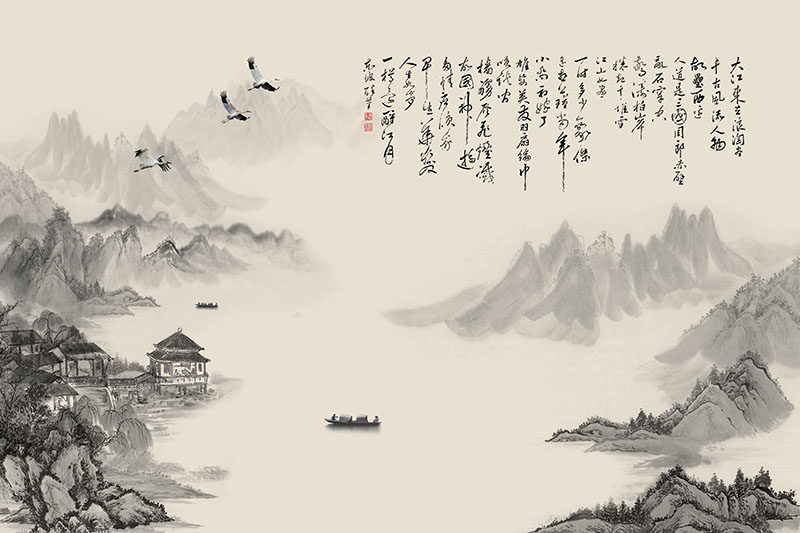 大江东去浪淘尽
千古风流人物
故壘西边
人道是三國周郎赤壁
乱石穿空
驚濤拍岸
捲起千堆雪
江山如畫
一时多少豪傑
遥想公瑾當年
小喬初嫁了
雄姿英发羽扇綸巾
笑谈间
檣櫓灰飛煙滅
故國神游
多情应笑我
早生华发
人生如梦
一樽还酹江月
东坡